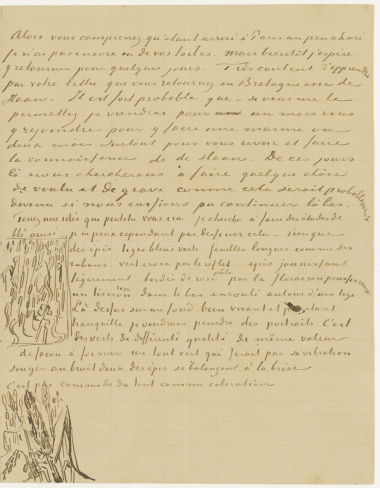 Alors vous comprenez qu'étant arrivé à Paris un peu ahuri
je n'ai pas encore vu de vos toiles. Mais bientôt j'espère
y retourner pour quelques jours. Très content d'apprendre
par votre lettre que vous retournez en Bretagne avec de
Haan. Il est fort probable que – si vous me le
permettez je viendrai pour un mois vous
y rejoindre pour y faire une marine ou
deux mais surtout pour vous revoir et faire
la connaissance de de Haan. De ces jours
là nous chercherons à faire quelque chose
de voulu et de grave comme cela serait probablement
devenu si nous eussions pu continuer là bas.
Tenez une idée qui peutetre vous ira je cherche à faire des études de
blé ainsi, je ne peux cependant pas dessiner cela – rien que
des épis tiges bleus verts feuilles longues comme des
rubans vert & rose par le reflet épis jaunissants
légèrement bordés de rose pâle par la floraison poussiéreuse
un liseron rose dans le bas enroulé autour d'une tige
Là dessus sur un fond bien vivant et pourtant
tranquille je voudrais peindre des portraits C'est
des verts de différente qualité de même valeur
de façon à former un tout vert qui ferait par sa vibration
songer au bruit doux des épis se balançant à la brise
c'est pas commode du tout comme coloration